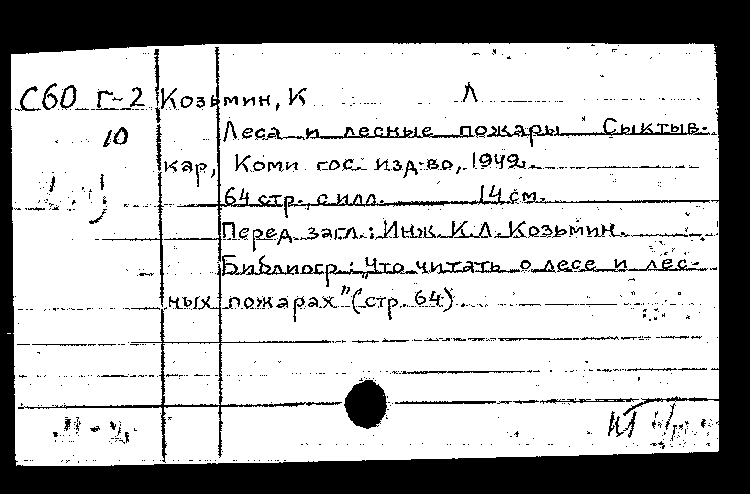 С60 Г-2 Козьмин, К Л
10 Леса и лесные пожары. Сыктыв-
кар, Коми гос. изд-во, 1949.
64 стр., с илл. 14 см.
Перед загл.: Инж. К.Л. Козьмин.
Библиогр.: "Что читать о лесе и лес-
ных пожарах" (стр. 64).